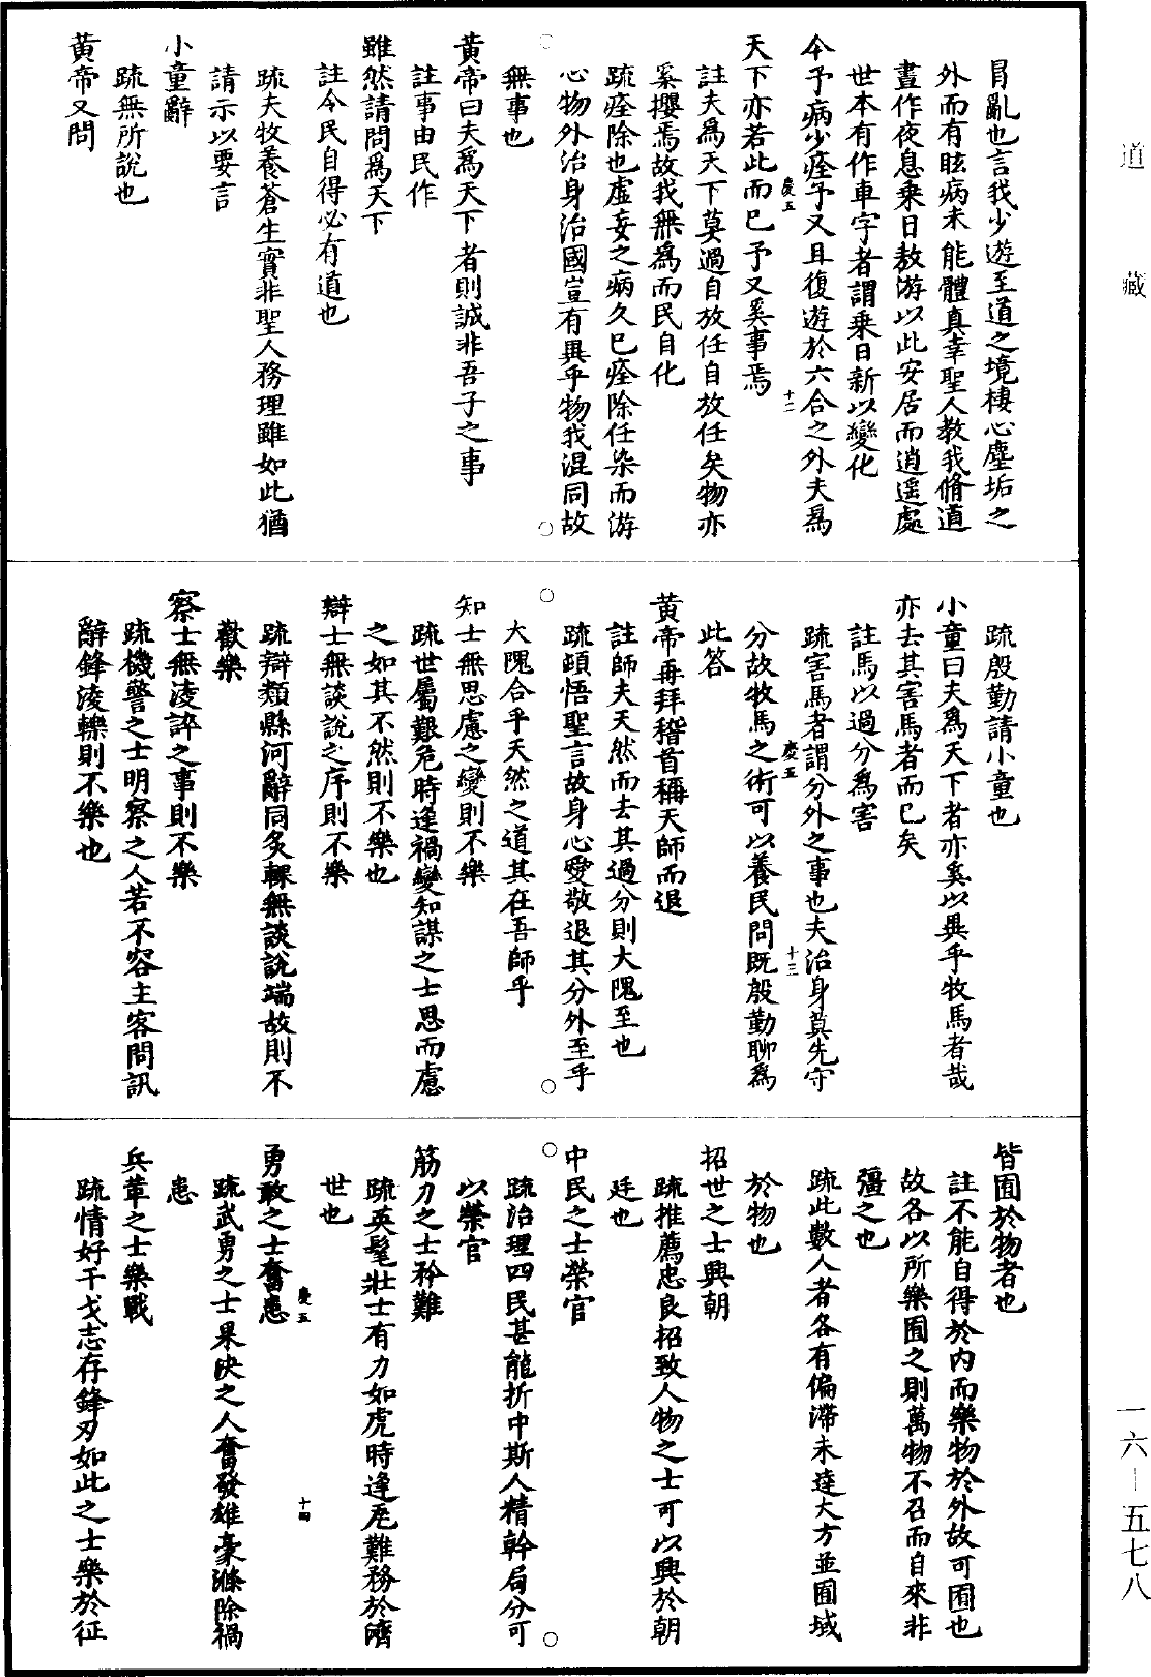 道藏
冐亂也言我少遊至道之境棲心塵垢之
外而有眩病未能體真幸聖人教我脩道
晝作夜息乗日敖游以此安居而逍遥處
世本有作車字者謂乗日新以變化
今予病少痊予又且復遊於六合之外夫爲
天下亦若此而巳予又奚事焉
慶五
十二
註夫爲天下莫過自放任自放任矣物亦
奚攖焉故我無爲而民自化
疏痊除也虛妄之病久巳痊除任染而游
心物外治身治國豈有異乎物我混同故
無事也
黄帝曰夫爲天下者則誠非吾子之事
註事由民作
雖然請問爲天下
註今民自得必有道也
疏夫牧養蒼生實非聖人務理雖如此猶
請示以要言
小童辭
疏無所說也
黄帝又問
疏殷勤請小童也
小童曰夫爲天下者亦奚以異乎牧馬者哉
亦去其害馬者而巳矣
註馬以過分爲害
疏害馬者謂分外之事也夫治身莫先守
分故牧馬之術可以養民問既殷勤聊爲
慶五
十三
此答
黄帝再拜稽首稱天師而退
註師夫天然而去其過分則大隗至也
疏頓悟聖言故身心愛敬退其分外至乎
大隗合乎天然之道其在吾師乎
知士無思慮之變則不樂
疏世屬艱危時逢禍變知謀之士思而慮
之如其不然則不樂也
辯士無談說之序則不樂
疏辯類縣河辭同炙輠無談說端故則不
歡樂
察士無淩誶之事則不樂
疏機警之士明察之人若不容主客問訊
辭鋒淩轢則不樂也
皆囿於物者也
註不能自得於内而樂物於外故可囿也
故各以所樂囿之則萬物不召而自來非
彊之也
疏此數人者各有偏滯未達大方並囿域
於物也
招世之士興朝
疏推薦忠良招致人物之士可以興於朝
廷也
中民之士榮官
疏治理四民甚能折中斯人精幹局分可
以榮官
筋力之士矜難
疏英髦壯士有力如虎時逢厄難務於濟
世也
勇敢之士奮患
慶五
十四
疏武勇之士果決之人奮發雄豪滌除禍
患
兵革之士樂戰
疏情好干戈志存鋒刃如此之士樂於征
一六—五七八